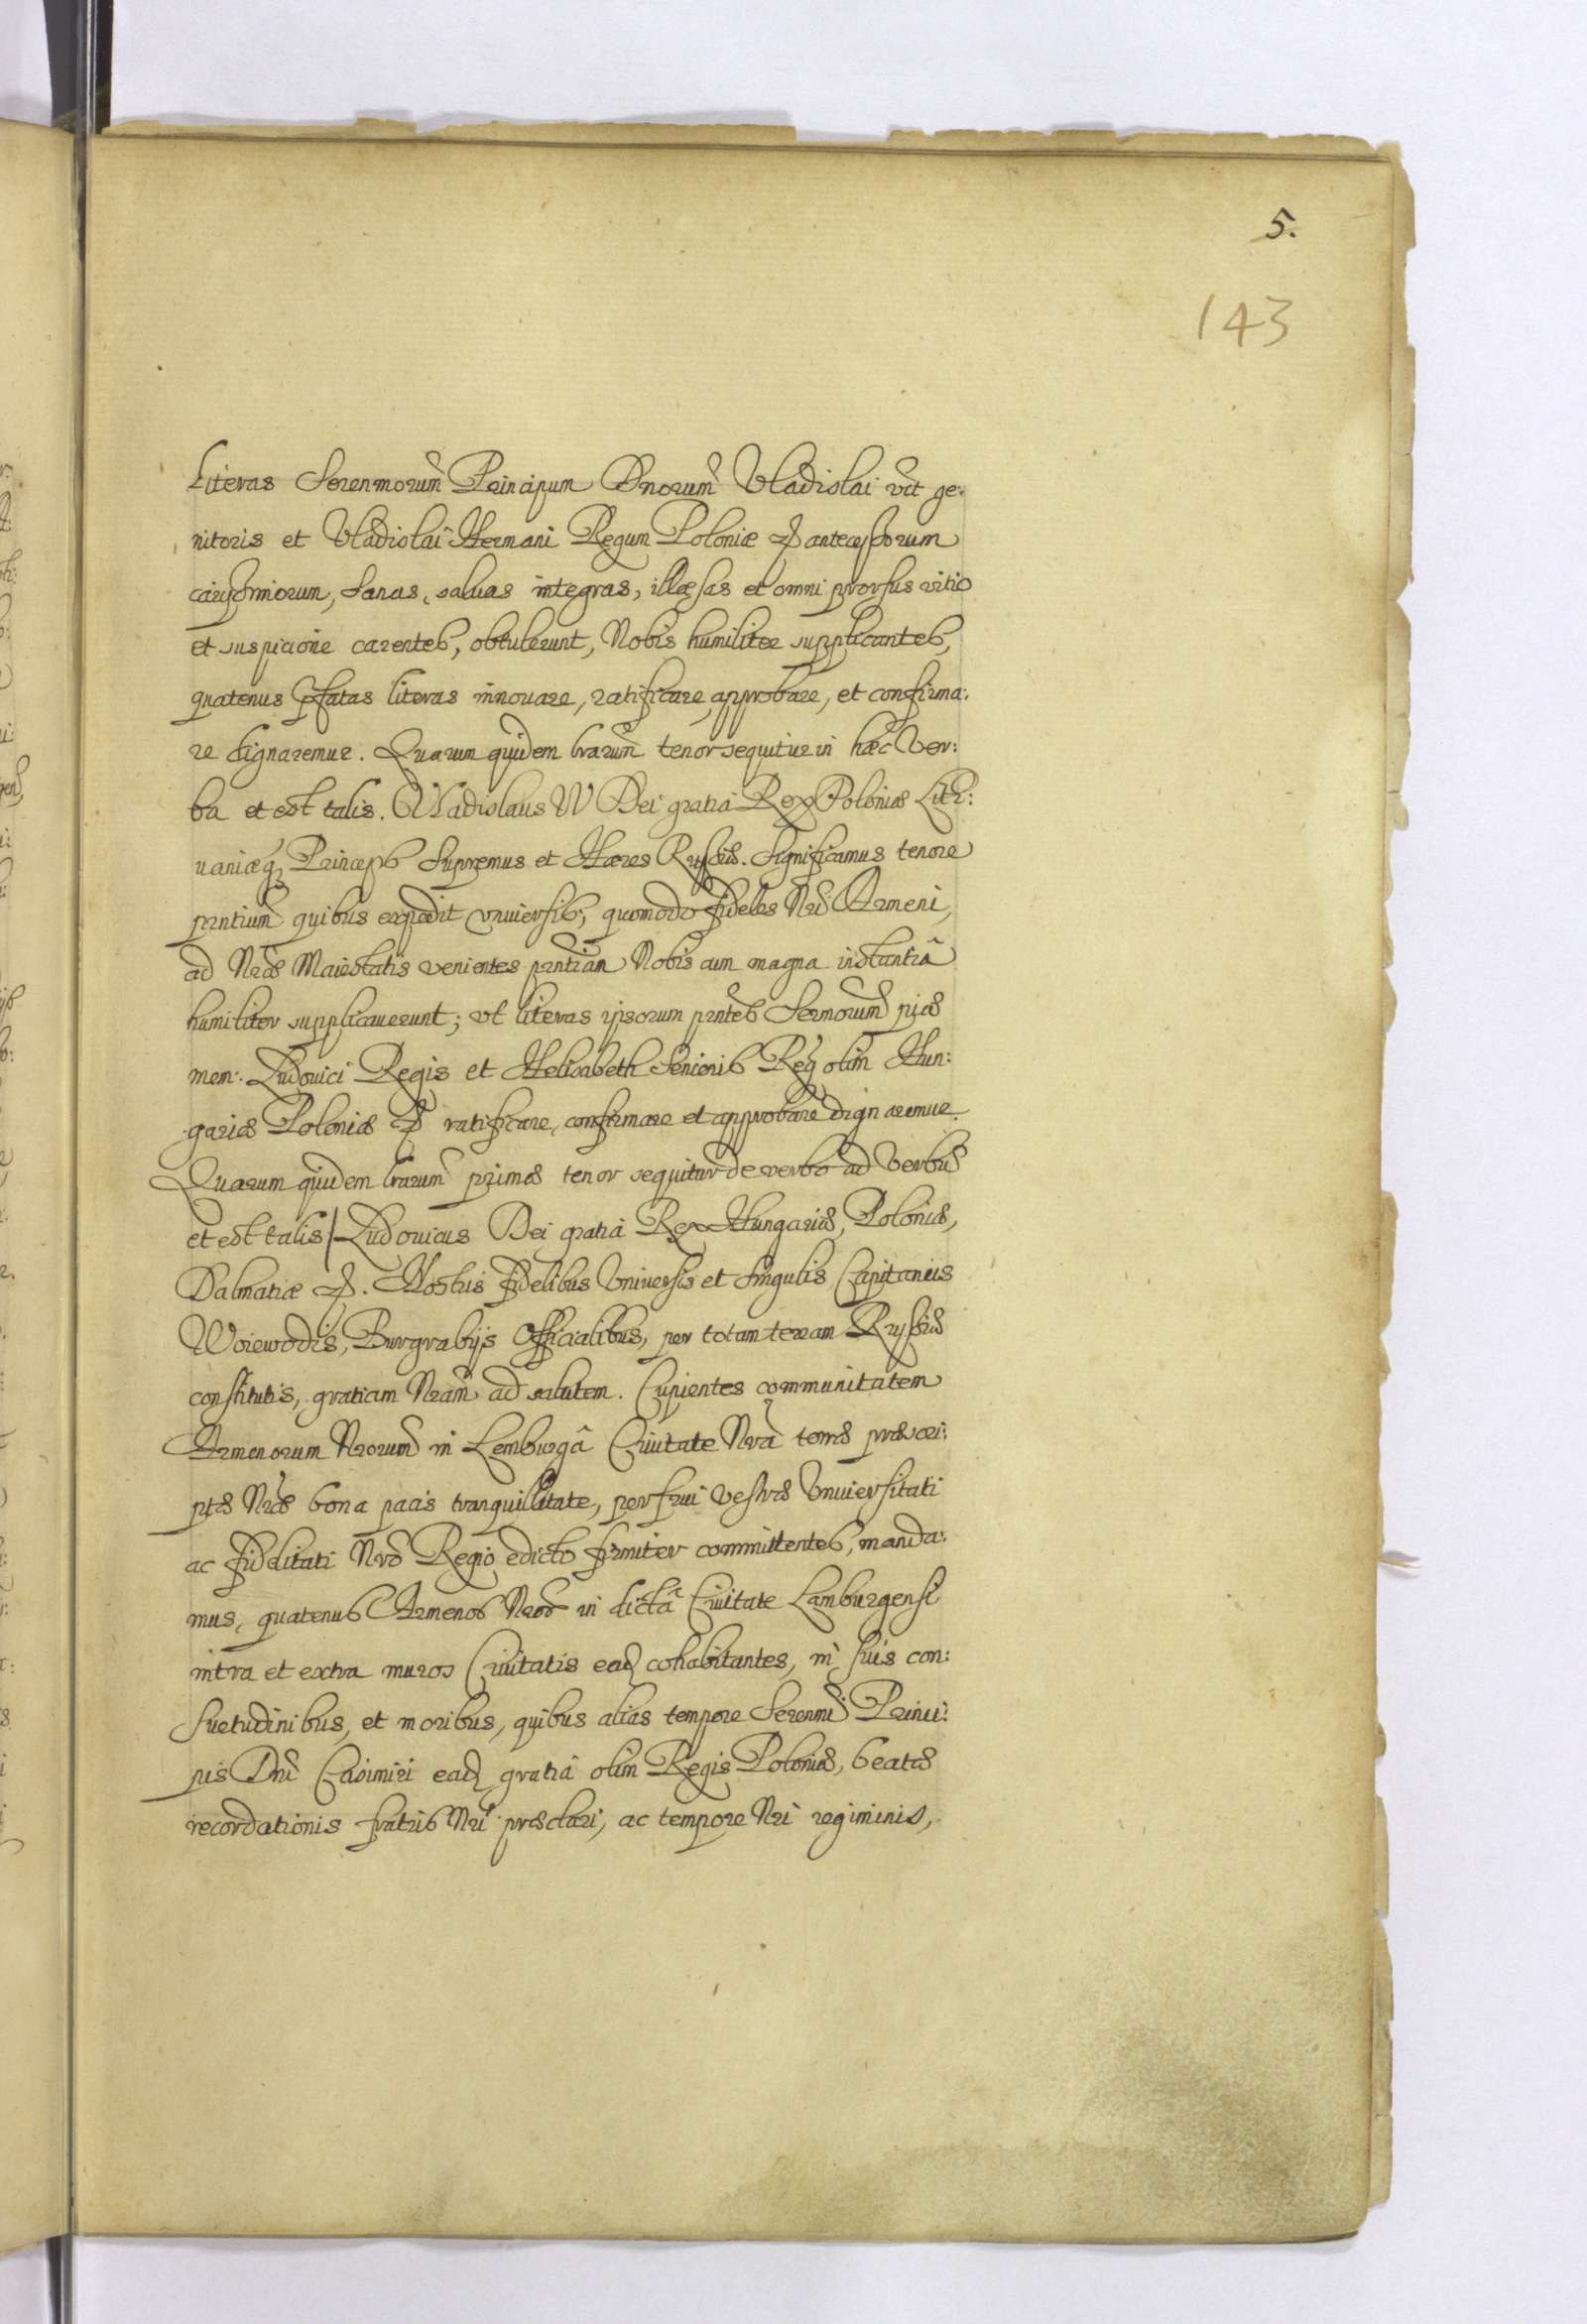 5.
143
Literas Serenmorum̃ Principum Dnorum̃ Vladislai vt̃ ge:
nitoris et Vladislai Hermani Regum Poloniæ & antecessorum
carissimorum, sanas, saluas integras, illæsas et omni prorsus vitio
et suspicione carentes, obtulerunt, Nobis humiliter supplicantes,
quatenus p̃fatas literas innouare, ratificare, approbare, et confirma:
re dignaremur. Quarum quidem lrarum̃ tenor sequitur in hæc Ver:
ba et est talis. Vladislaus W Dei gratiâ Rex Poloniæ Lith:
uaniæq Princeps Supremus et Hæres Russiæ. Significamus tenore
prntium̃ quibus expedit vniuersis, quomodo fideles Nri Armeni,
ad Nræ Maiestatis venientes prntiam Nobis cum magna instantiâ
humiliter supplicauerunt; vt literas ipsorum prntes Sermorum̃ piæ
mem: Ludouici Regis et Helisabeth Senioris Reg olim Hun:
gariæ Poloniæ & ratificare, confirmare et approbare dignaremur.
Quarum quidem lrarum̃ primæ tenor sequitur de verbo ad verbũ
et est talis / Ludouicus Dei gratiâ Rex Hungariæ, Poloniæ,
Dalmatiæ &. Nostris fidelibus Vniuersis et singulis Capitaneis
Woiewodis, Burgrabijs Officialibus, per totam terram Russiæ
constitutis, gratiam Nram̃ ad salutem. Cupientes communitatem
Armenorum Nrorum̃ in Lemburgâ Ciuitate Nrâ terræ præscri:
ptæ Nræ bona pacis tranquillitate, perfrui Vestræ Vniuersitati
ac fidelitati Nro Regio edicto firmiter committentes, manda:
mus, quatenus Armenos Nros in dictâ Ciuitate Lamburgensi
intra et extra muros Ciuitatis ead cohabitantes, in suis con:
suetudinibus, et moribus, quibus alias tempore Serenmi Princi:
pis Dni Casimiri ead gratiâ olim Regis Poloniæ, beatæ
recordationis fratris Nri præclari, ac tempore Nri regiminis,